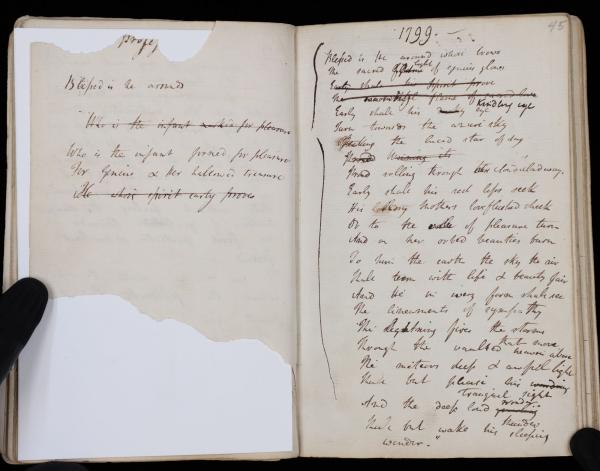 Blessed is he around
Who is the infant for pleasure
Who is the infant formed for pleasure
For Genius & her hallowed treasure
He whose spirit early proves
45
1799.
Blessed is He around whose brows
The sacred light of genius glows
Early shall his spirit prove
The flame of
Early shall his kindling eye
Turn towards the azure sky
the lucid star of day
rolling through
Early shall his red lips seek
His Mothers loveflushed cheek
Or to the of pleasure turn
And on her orbed beauties burn
To him the earth the sky the air
Shall teem with life & beauty fair
And he in every form shall see
The lineaments of sympathy
The lightning fires the storms
that move
Through the vaulted heaven above
The meteors deep & awful light
Shall but please his
tranquil sight
And the deep loud
thunder
Shall but wake his sleeping
wonder."